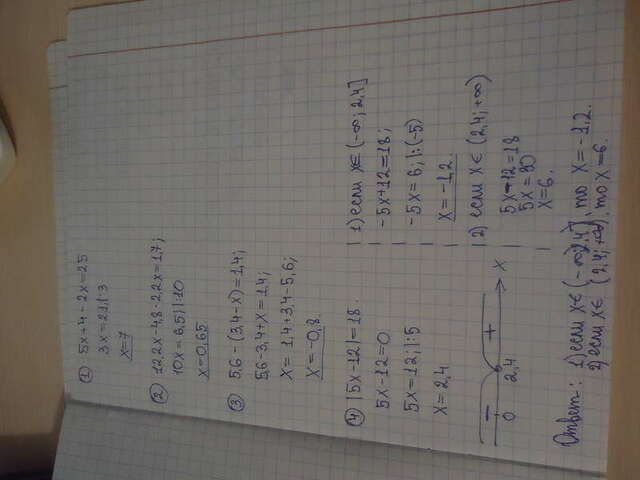 ① 5x+4-2x=25
3x=21;|:3
x=7
② 12,2x-4,8-2,2x=1,7;
10x=6,5;|:10
x=0,65
③ 5,6-(3,4-x)=1,4;
5,6-3,4+x=1,4;
x=1,4+3,4-5,6;
x=-0,8.
④ |5x-12|=18.
5x-12=0
5x=12;|:5
x=2,4
- +
0 2,4 x
1) если x∈(-∞;2,4]
-5x+12=18;
-5x=6;|:(-5)
x=-1,2.
2) если x∈(2,4;+∞)
5x-12=18
5x=30
x=6.
Ответ: 1) если x∈(-∞;2,4], то x=-1,2.
2) если x∈(2,4;+∞), то x=6.